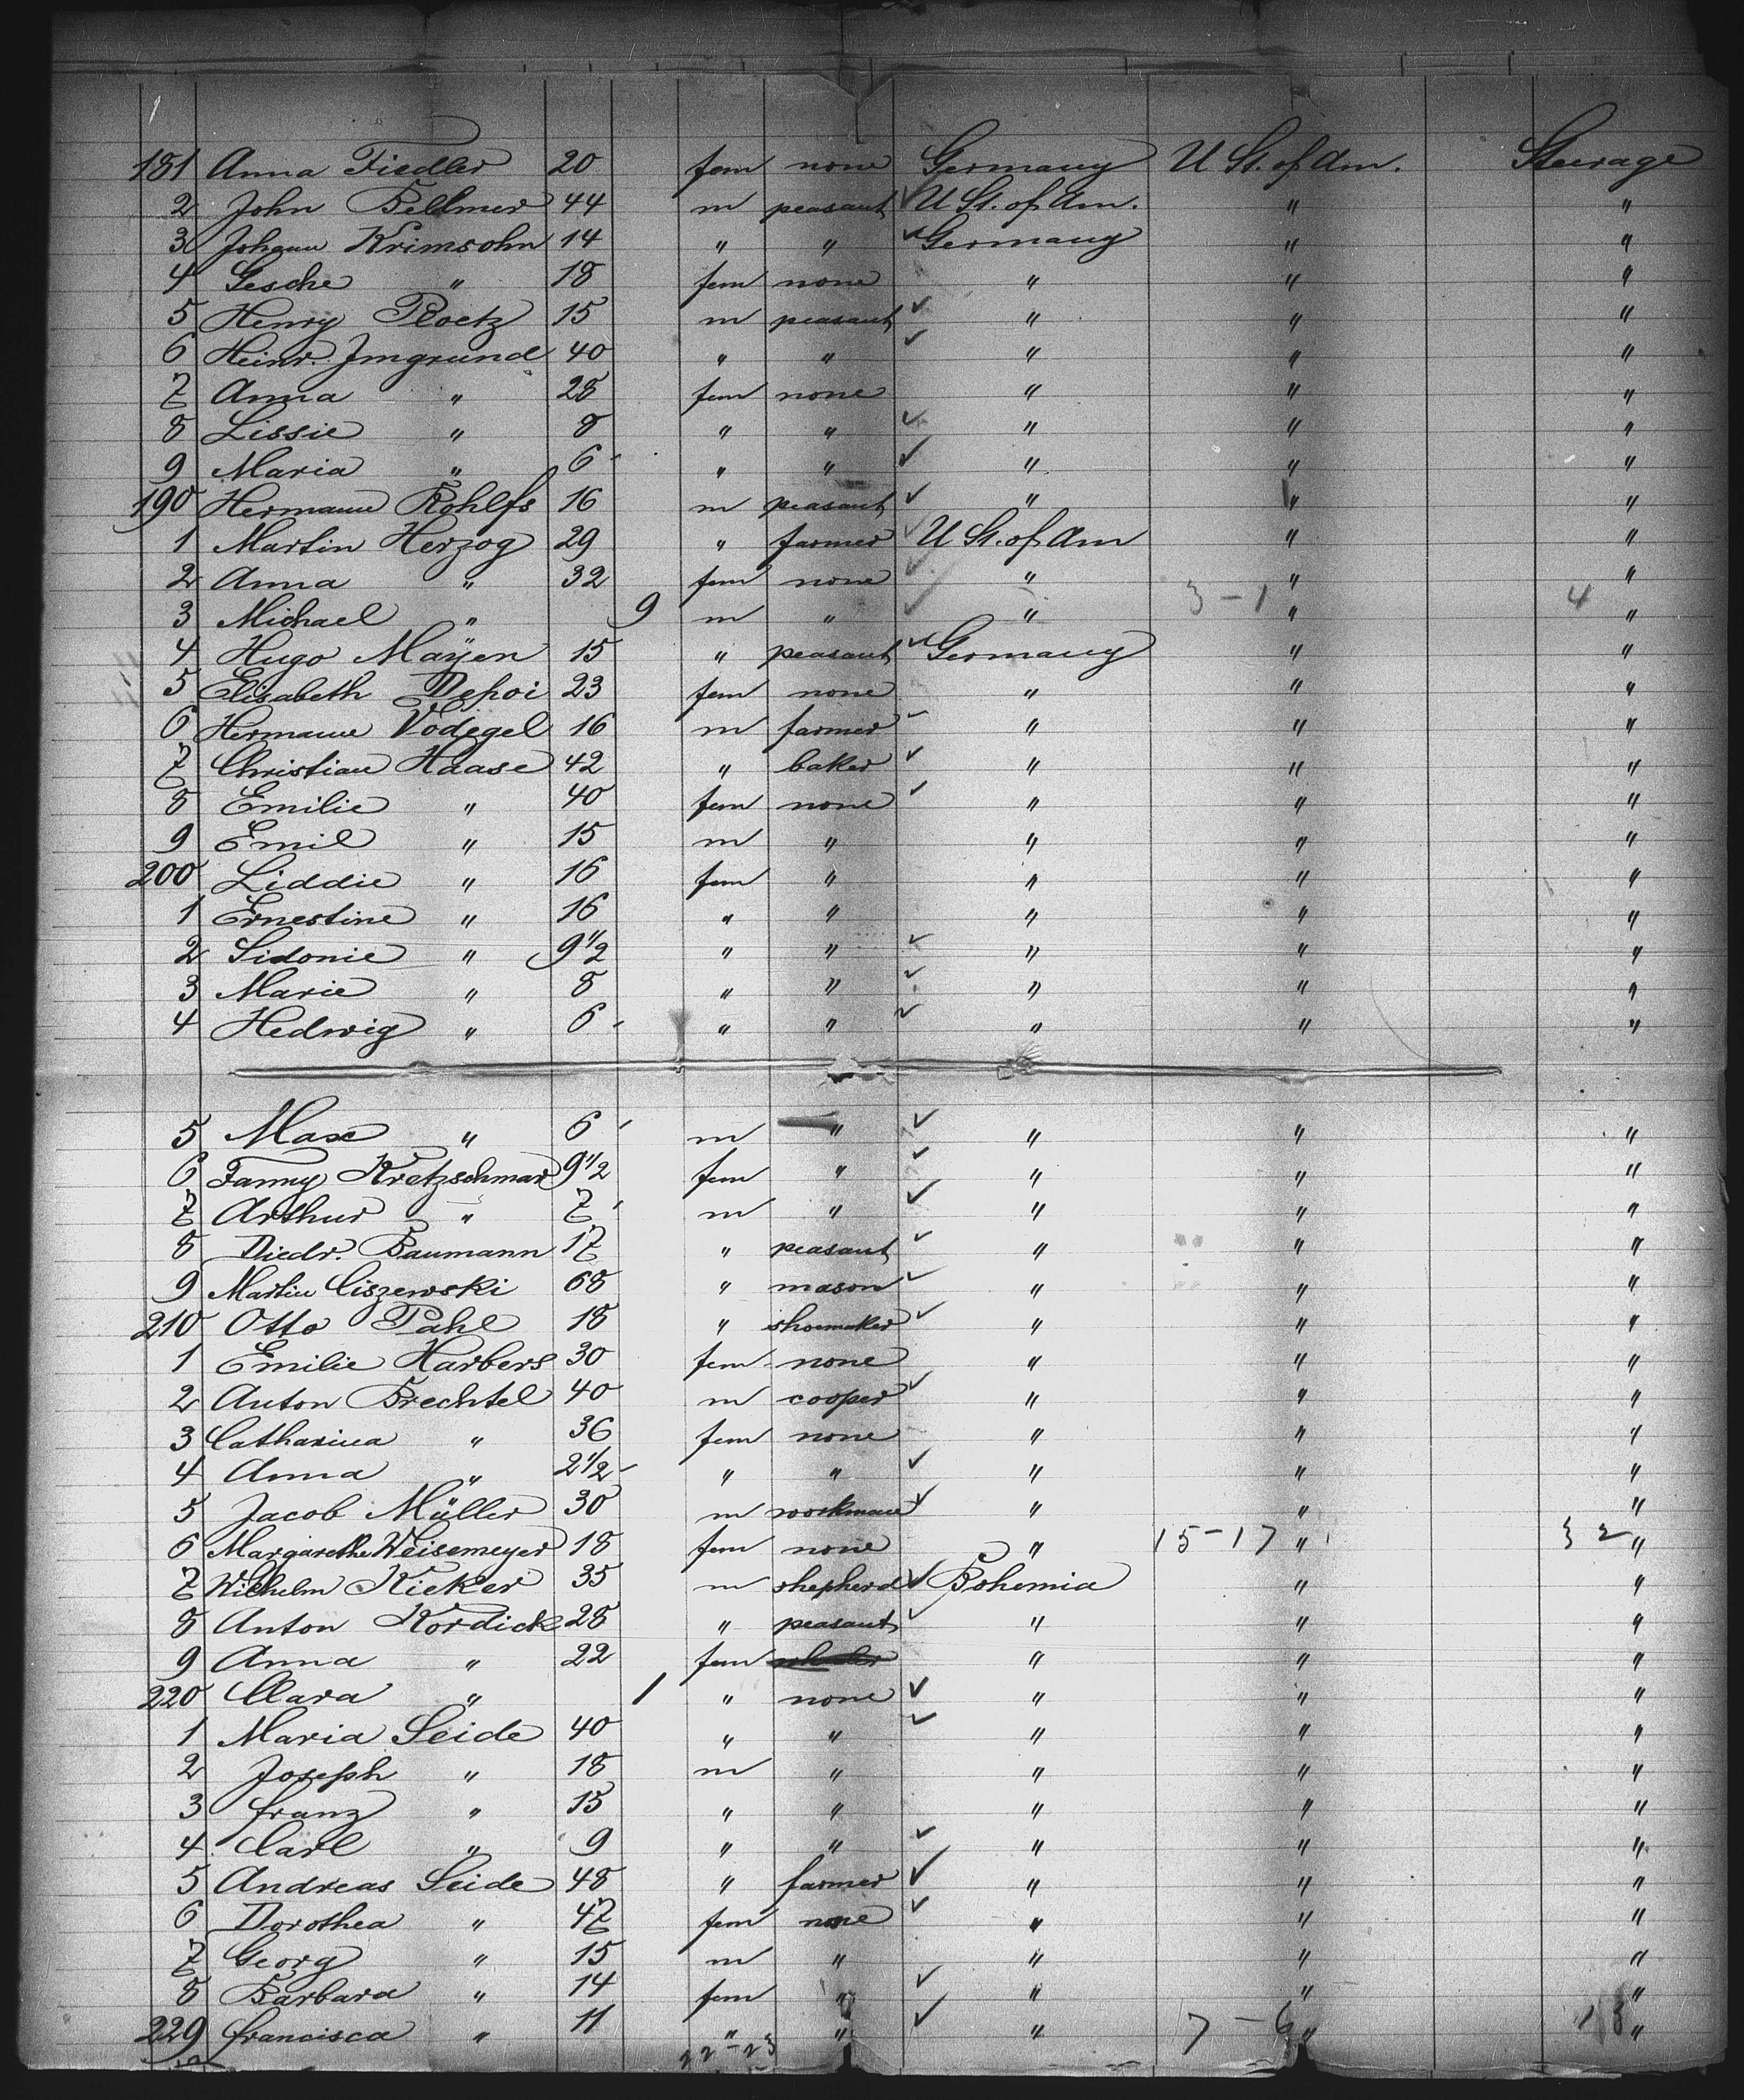 181 Anna Fiedler 20 fem none Germany U St. of Am. Steerage
2 John Bellmer 44 m peasant U St. of Am. " "
3 Johann Krimsohn 14 " " Germany " "
4 Gesche " 18 fem none " " "
5 Henry Ploetz 15 m peasant " " "
6 Heinr. Imgrund 40 " " " " "
7 Anna " 28 fem none " " "
8 Lissie " 8 " " " " "
9 Maria " 6 " " " " "
190 Hermann Rohlfs 16 m peasant " " "
1 Martin Herzog 29 " farmer U St. of Am " "
2 Anna " 32 fem none " " "
3 Michael " 9 m " " 3-1 " 4 "
4 Hugo Mayen 15 " peasant Germany " "
5 Elisabeth Depoi 23 fem none " " "
6 Hermann Vodegel 16 m farmer " " "
7 Christian Haase 42 " baker " " "
8 Emilie " 40 fem none " " "
9 Emil " 15 m " " " "
200 Liddie " 16 fem " " " "
1 Ernestine " 16 " " " " "
2 Sidonie " 9 1/2 " " " " "
3 Marie " 8 " " " " "
4 Hedwig " 6 " " " " "
5 Max " 6 m " " " "
6 Fanny Kretzschmar 9 1/2 fem " " " "
7 Arthur " 7 m " " " "
8 Diedr. Baumann 17 " peasant " " "
9 Martin Ciszewski 68 " mason " " "
210 Otto Pahl 18 " shoemaker " " "
1 Emilie Harbers 30 fem none " " "
2 Anton Brechtel 40 m cooper " " "
3 Catharina " 36 fem none " " "
4 Anna " 2 1/2 " " " " "
5 Jacob Müller 30 m workman " " "
6 Margarethe Weisemeyer 18 fem none " 15-17 " 32 "
7 Wilhelm Kieker 35 m shepherd Bohemia " "
8 Anton Kordick 28 " peasant " " "
9 Anna " 22 fem " " "
220 Clara " 1 " none " " "
1 Maria Seide 40 " " " " "
2 Joseph " 18 m " " " "
3 Franz " 15 " " " " "
4 Carl " 9 " " " " "
5 Andreas Seide 48 " farmer " " "
6 Dorothea " 47 fem none " " "
7 Georg " 15 m " " " "
8 Barbara " 14 fem " " " "
229 Francisca " 11 " " " 7-6 " 13 "
22-23